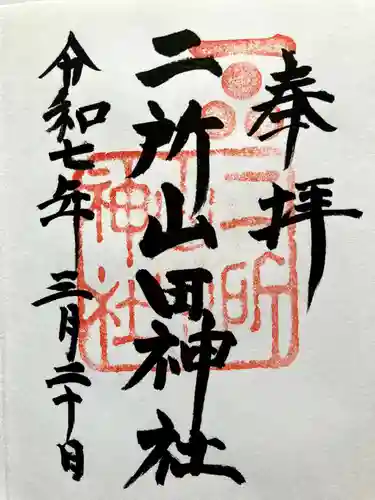 奉拝
二所山田神社
令和七年三月二十日
二所山田神社